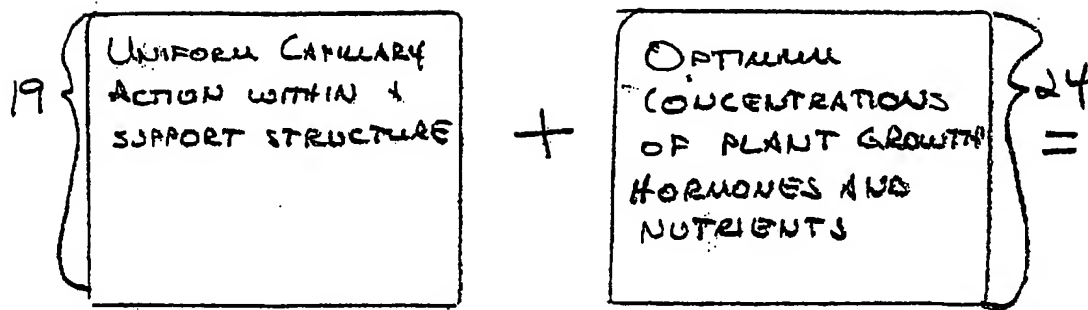 19
UNIFORM CAPILLARY
ACTION WITHIN &
SUPPORT STRUCTURE
+
OPTIMUM
CONCENTRATIONS
OF PLANT GROWTH
HORMONES AND
NUTRIENTS
24
=